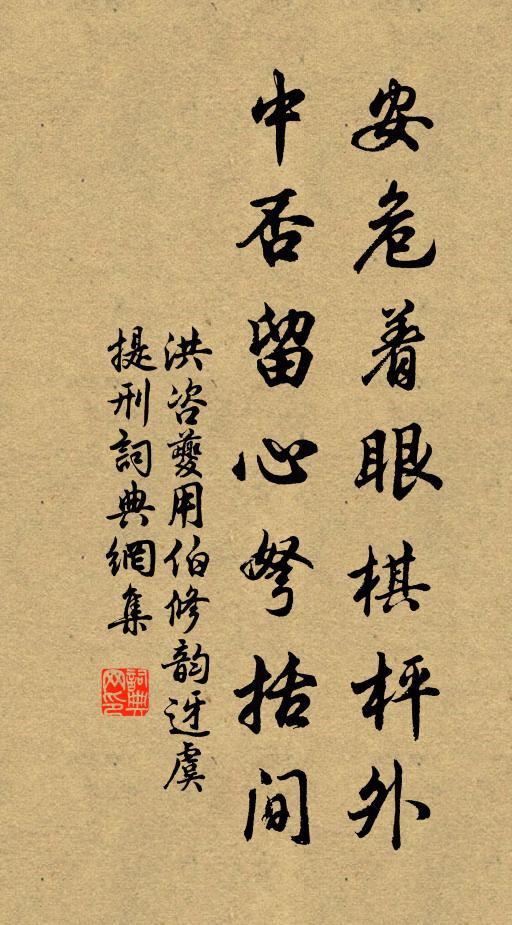 安危着眼棋枰外
中否留心弩括间
洪咨夔用伯修韵迓虞
提刑詞典網集
詞典網印